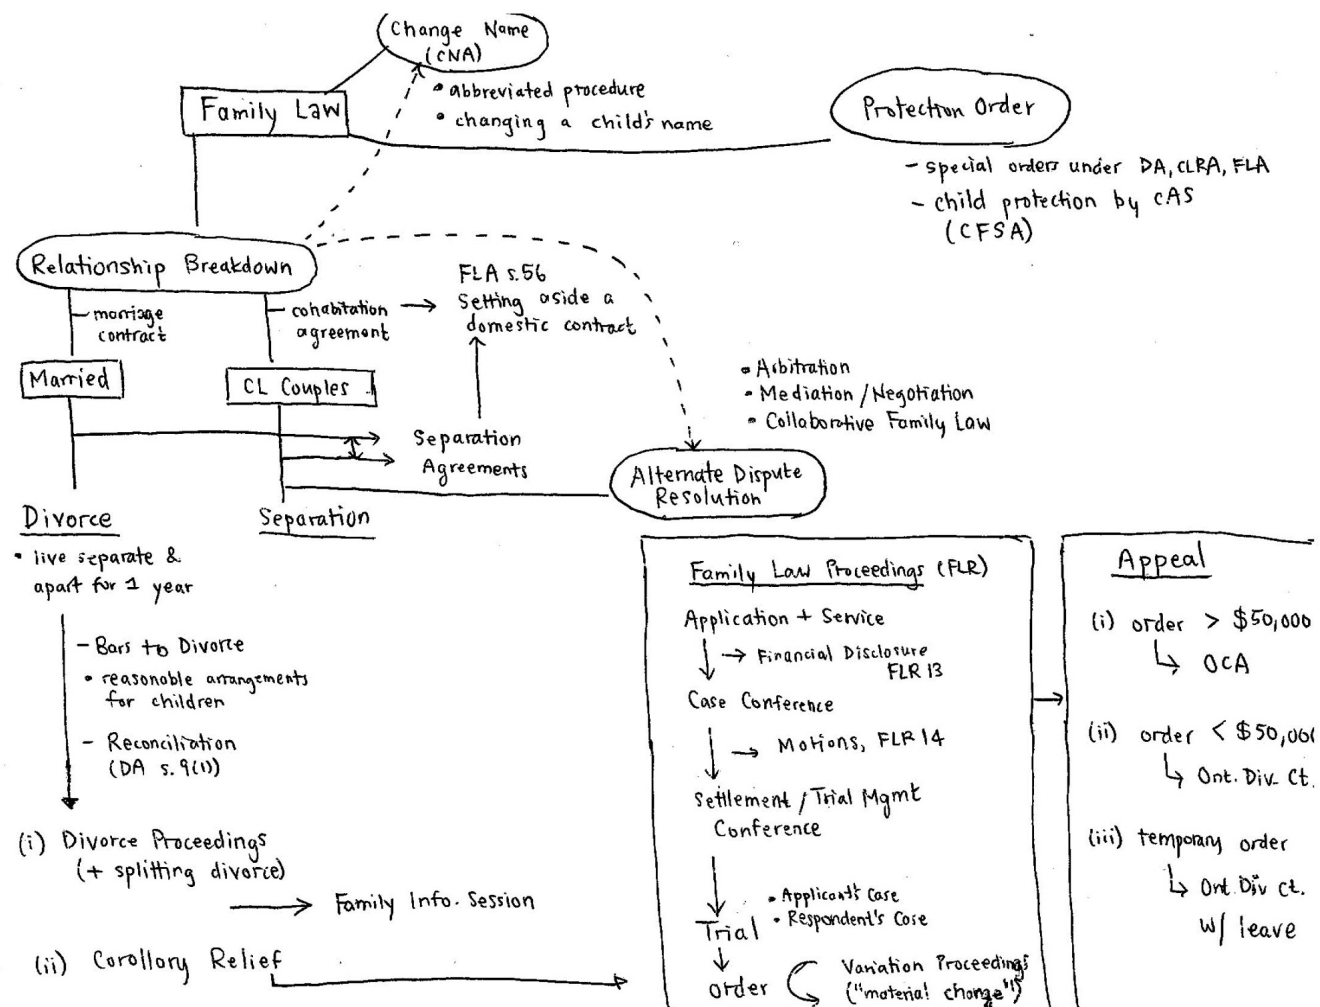 Change Name
(CNA)
• abbreviated procedure
• changing a child's name
Family Law
Protection Order
- special orders under DA, CLRA, FLA
- child protection by CAS
(CFSA)
Relationship Breakdown
marriage
contract
cohabitation
agreement
FLA s.56
Setting aside a
domestic contract
Married
CL Couples
Separation
Agreements
• Arbitration
• Mediation / Negotiation
• Collaborative Family Law
Alternate Dispute
Resolution
Divorce
• live separate &
apart for 1 year
Separation
- Bars to Divorce
• reasonable arrangements
for children
- Reconciliation
(DA s. 9(1))
(i) Divorce Proceedings
(+ splitting divorce)
Family Info. Session
(ii) Corollory Relief
Family Law Proceedings (FLR)
Application + Service
→ Financial Disclosure
FLR 13
Case Conference
→ Motions, FLR 14
Settlement / Trial Mgmt
Conference
Trial
• Applicant's Case
• Respondent's Case
order
Variation Proceedings
("material change")
Appeal
(i) order > $50,000
↳ OCA
(ii) order < $50,000
↳ Ont. Div. Ct.
(iii) temporary order
↳ Ont. Div Ct.
w/ leave